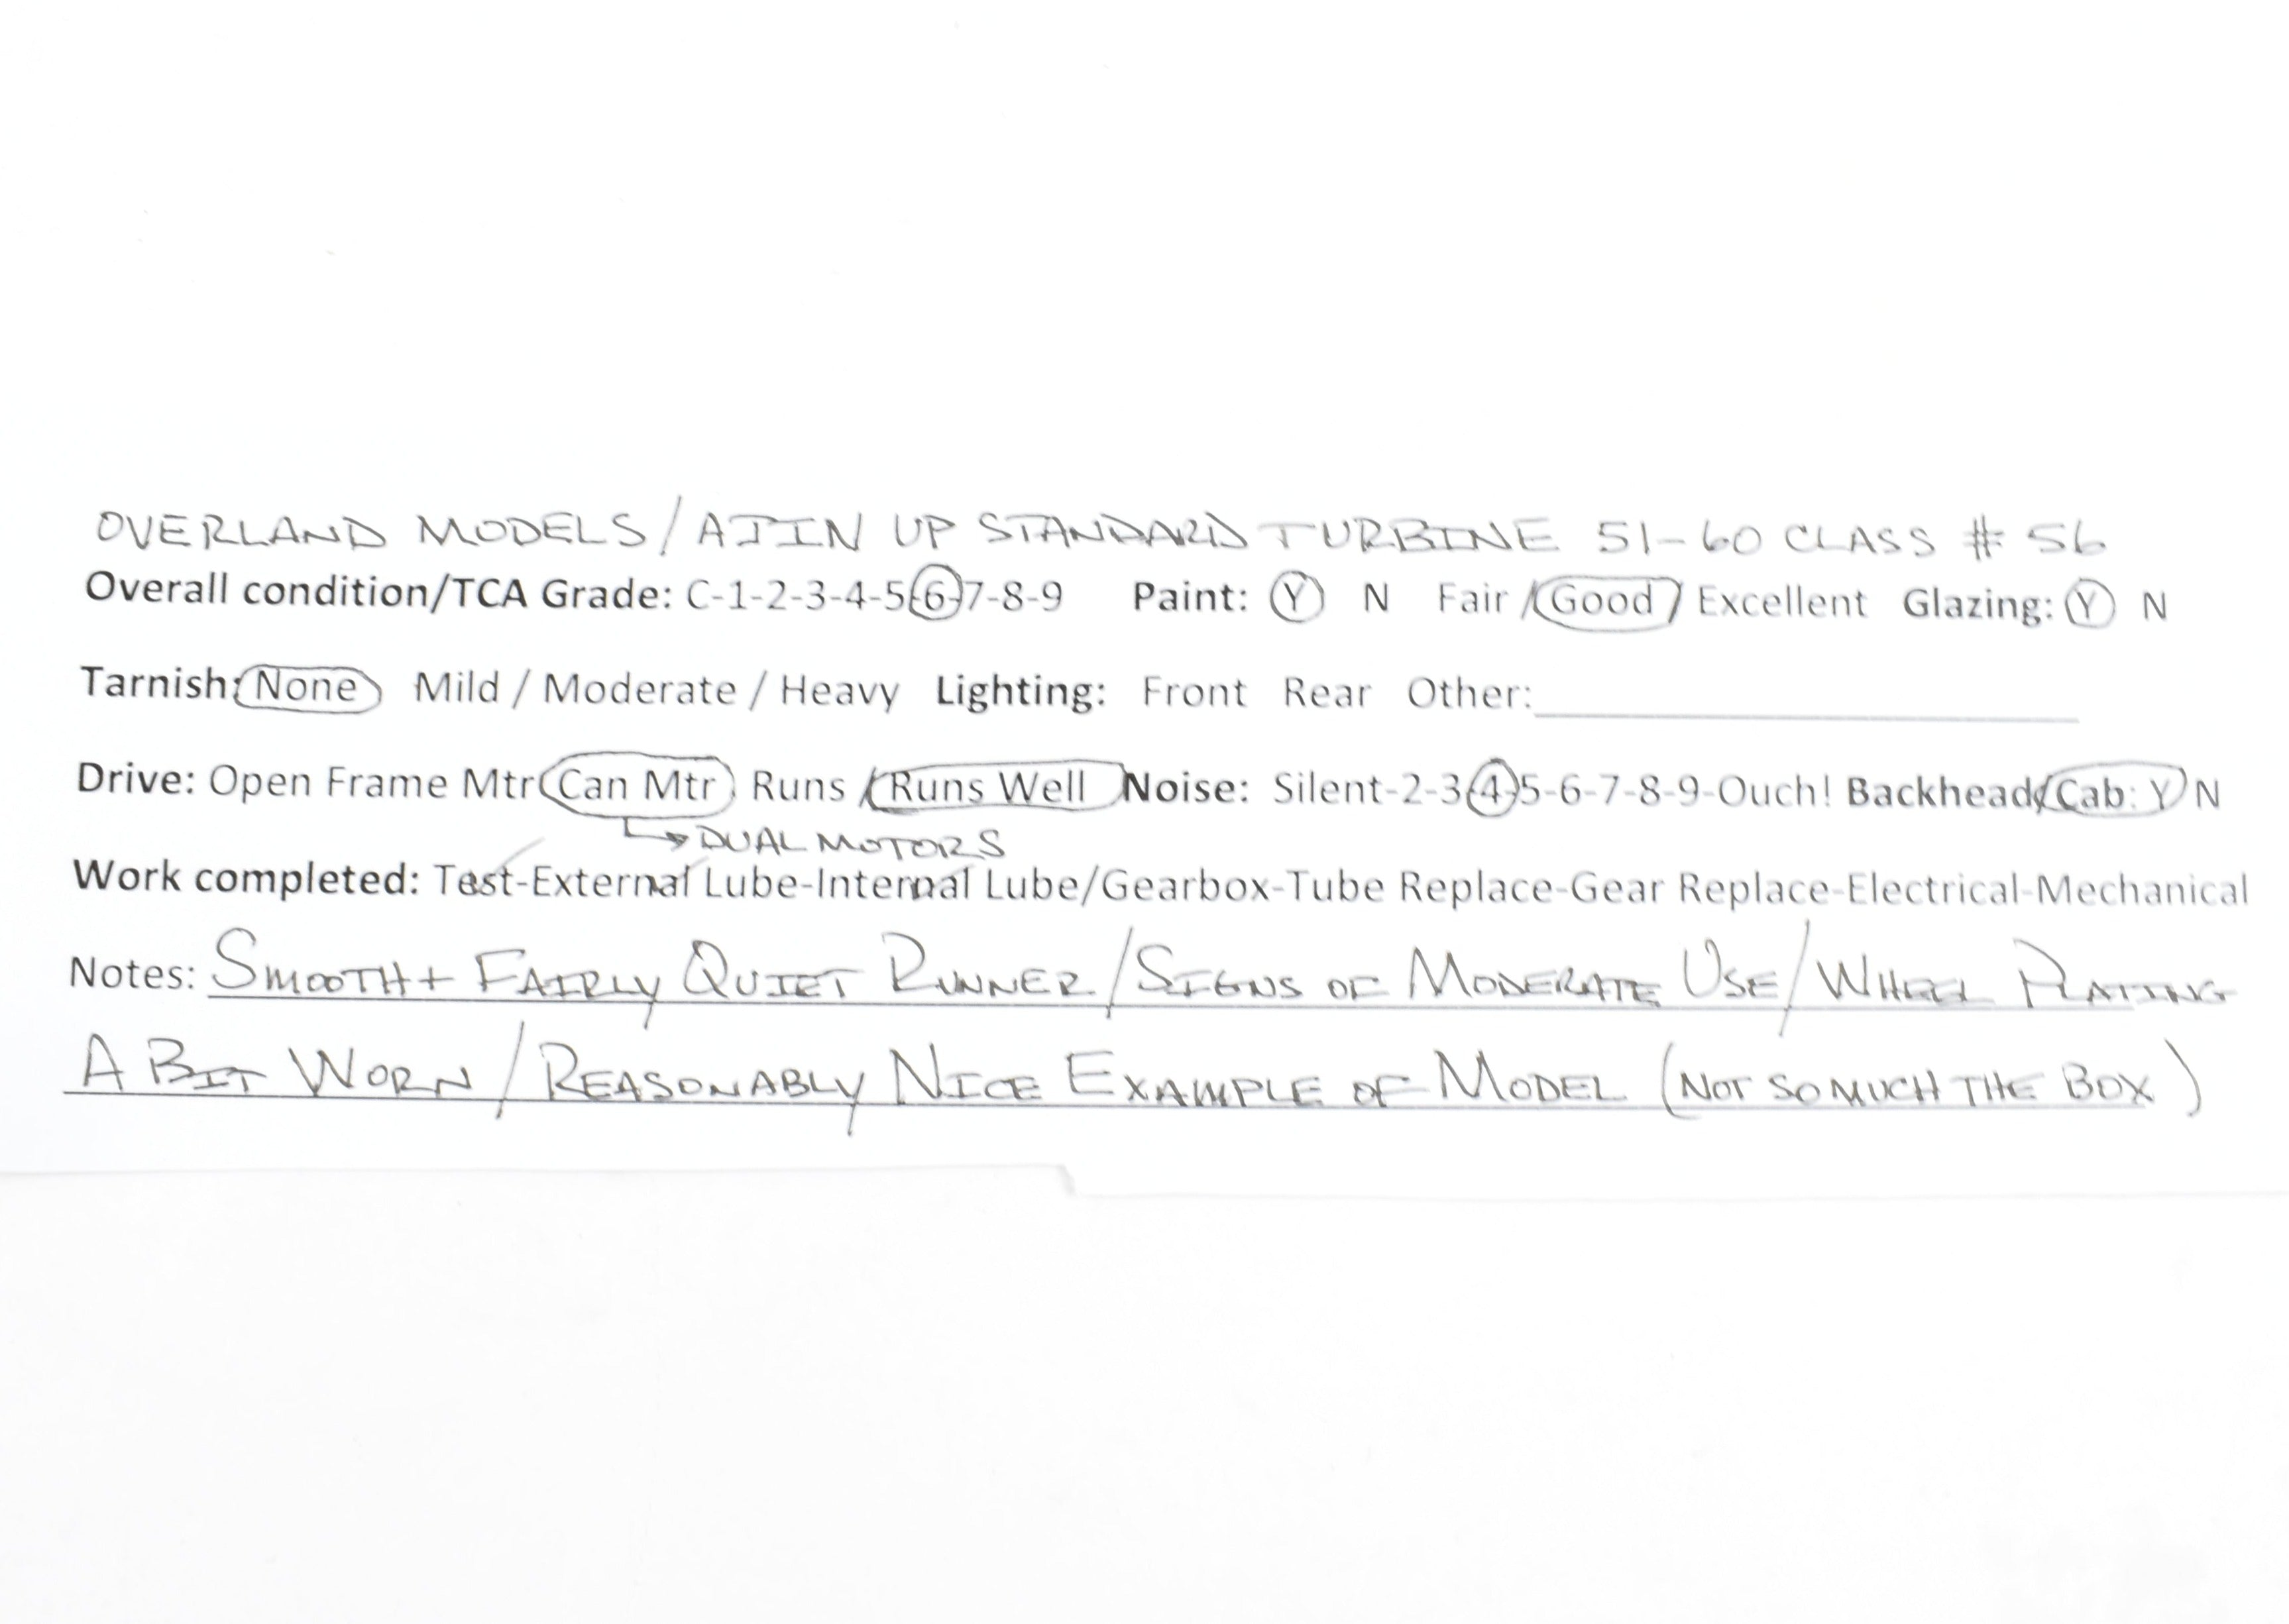 OVERLAND MODELS/AJIN UP STANDARD TURBINE 51-60 CLASS # 56
Overall condition/TCA Grade: C-1-2-3-4-5-6-7-8-9 Paint: Y N Fair / Good / Excellent Glazing: Y N
Tarnish: None Mild / Moderate / Heavy Lighting: Front Rear Other:
Drive: Open Frame Mtr Can Mtr Runs / Runs Well Noise: Silent-2-3-4-5-6-7-8-9-Ouch! Backhead/Cab: Y N
DUAL MOTORS
Work completed: Test-External Lube-Internal Lube/Gearbox-Tube Replace-Gear Replace-Electrical-Mechanical
Notes: SMOOTH + FAIRLY QUIET RUNNER/SIGNS OF MODERATE USE/WHEEL PLATING
A BIT WORN/REASONABLY NICE EXAMPLE OF MODEL (NOT SO MUCH THE BOX)